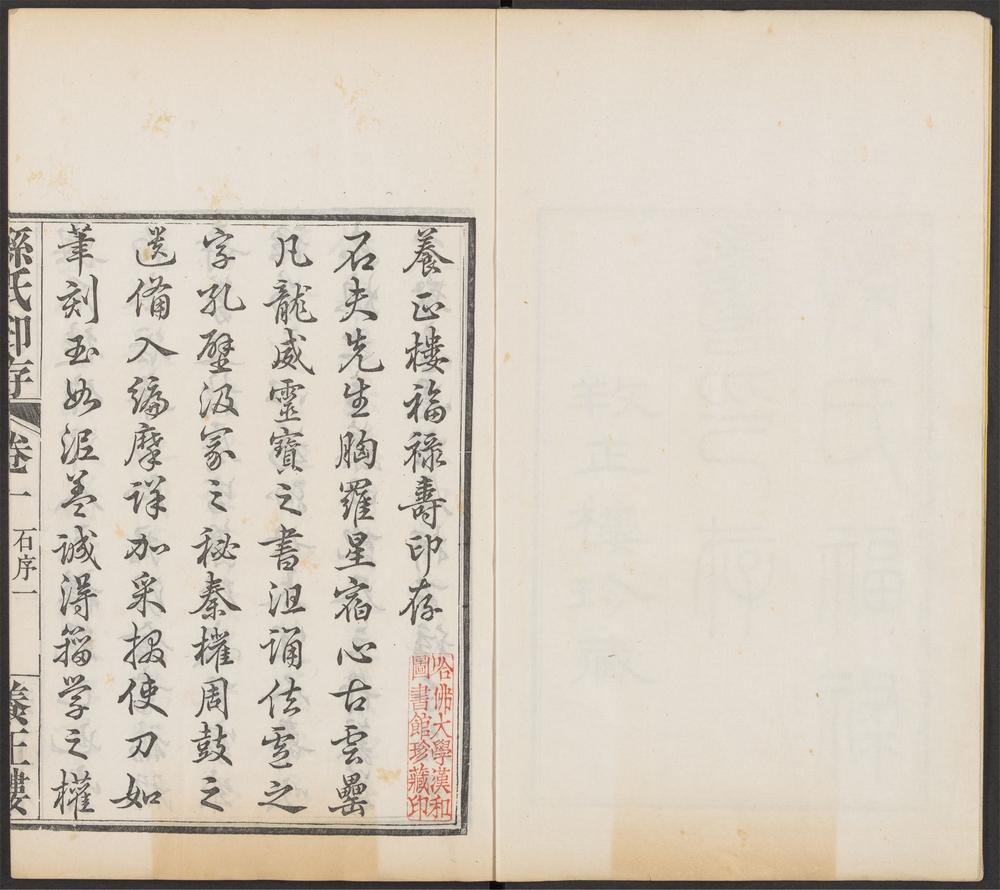 養正樓福祿壽印存
石夫先生胸羅星宿心古雲罍
凡龍威靈寶之書沮誦佉盧之
字孔壁汲冢之秘秦權周鼓之
遺備入編摩詳加采掇使刀如
筆刻玉如泥蓋誠得籀學之權
孫氏印存
卷一
石序一
養正樓
哈佛大學漢和
圖書館珍藏印